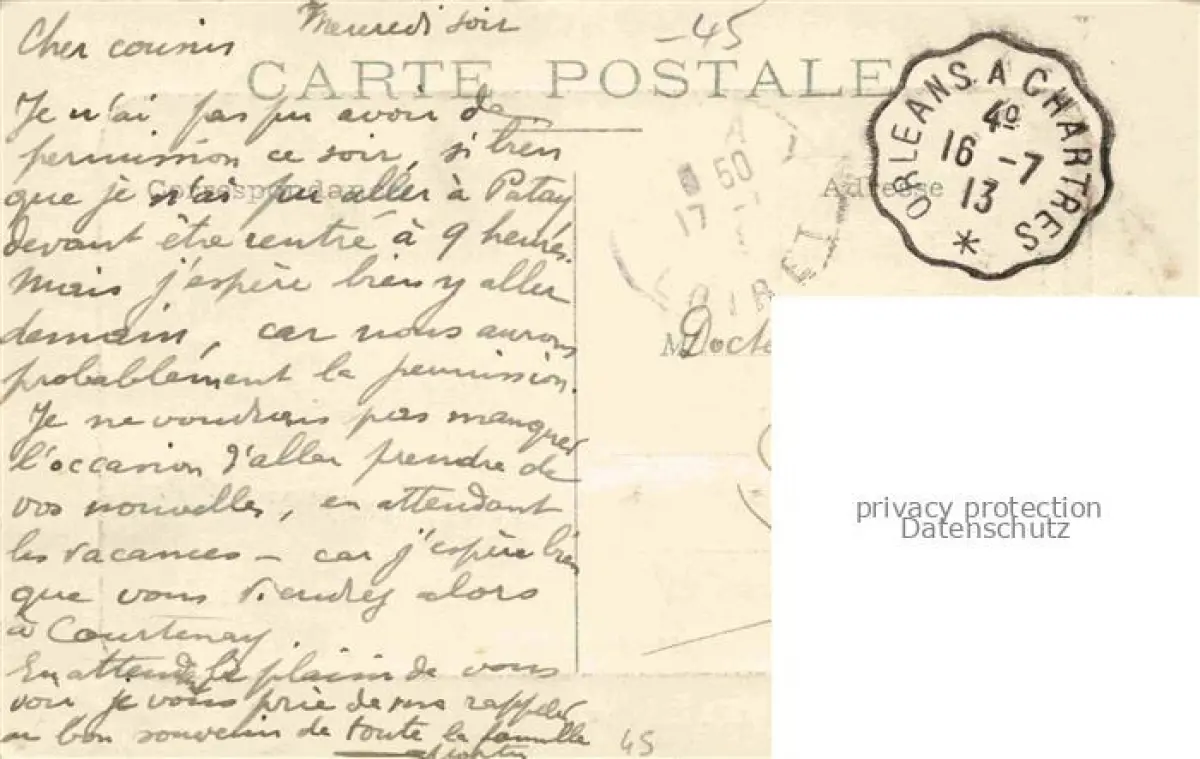 Mercredi soir
-45
Cher cousins
CARTE POSTALE
ORLEANS A CHARTRES
4º
16 -7
13
*
50
17 -
LOIRET
Je n'ai pas pu avoir de
permission ce soir, si bien
Correspondance
Adresse
que je n'ai pu aller à Patay
devant être rentré à 9 heures.
Mais j'espère bien y aller
demain, car nous aurons
M
Docte
probablement la permission.
Je ne voudrais pas manquer
l'occasion d'aller prendre de
vos nouvelles, en attendant
les vacances - car j'espère bien
que vous viendrez alors
à Courtenay.
En attendant le plaisir de vous
voir je vous prie de me rappeler
au bon souvenir de toute la famille
45
privacy protection
Datenschutz